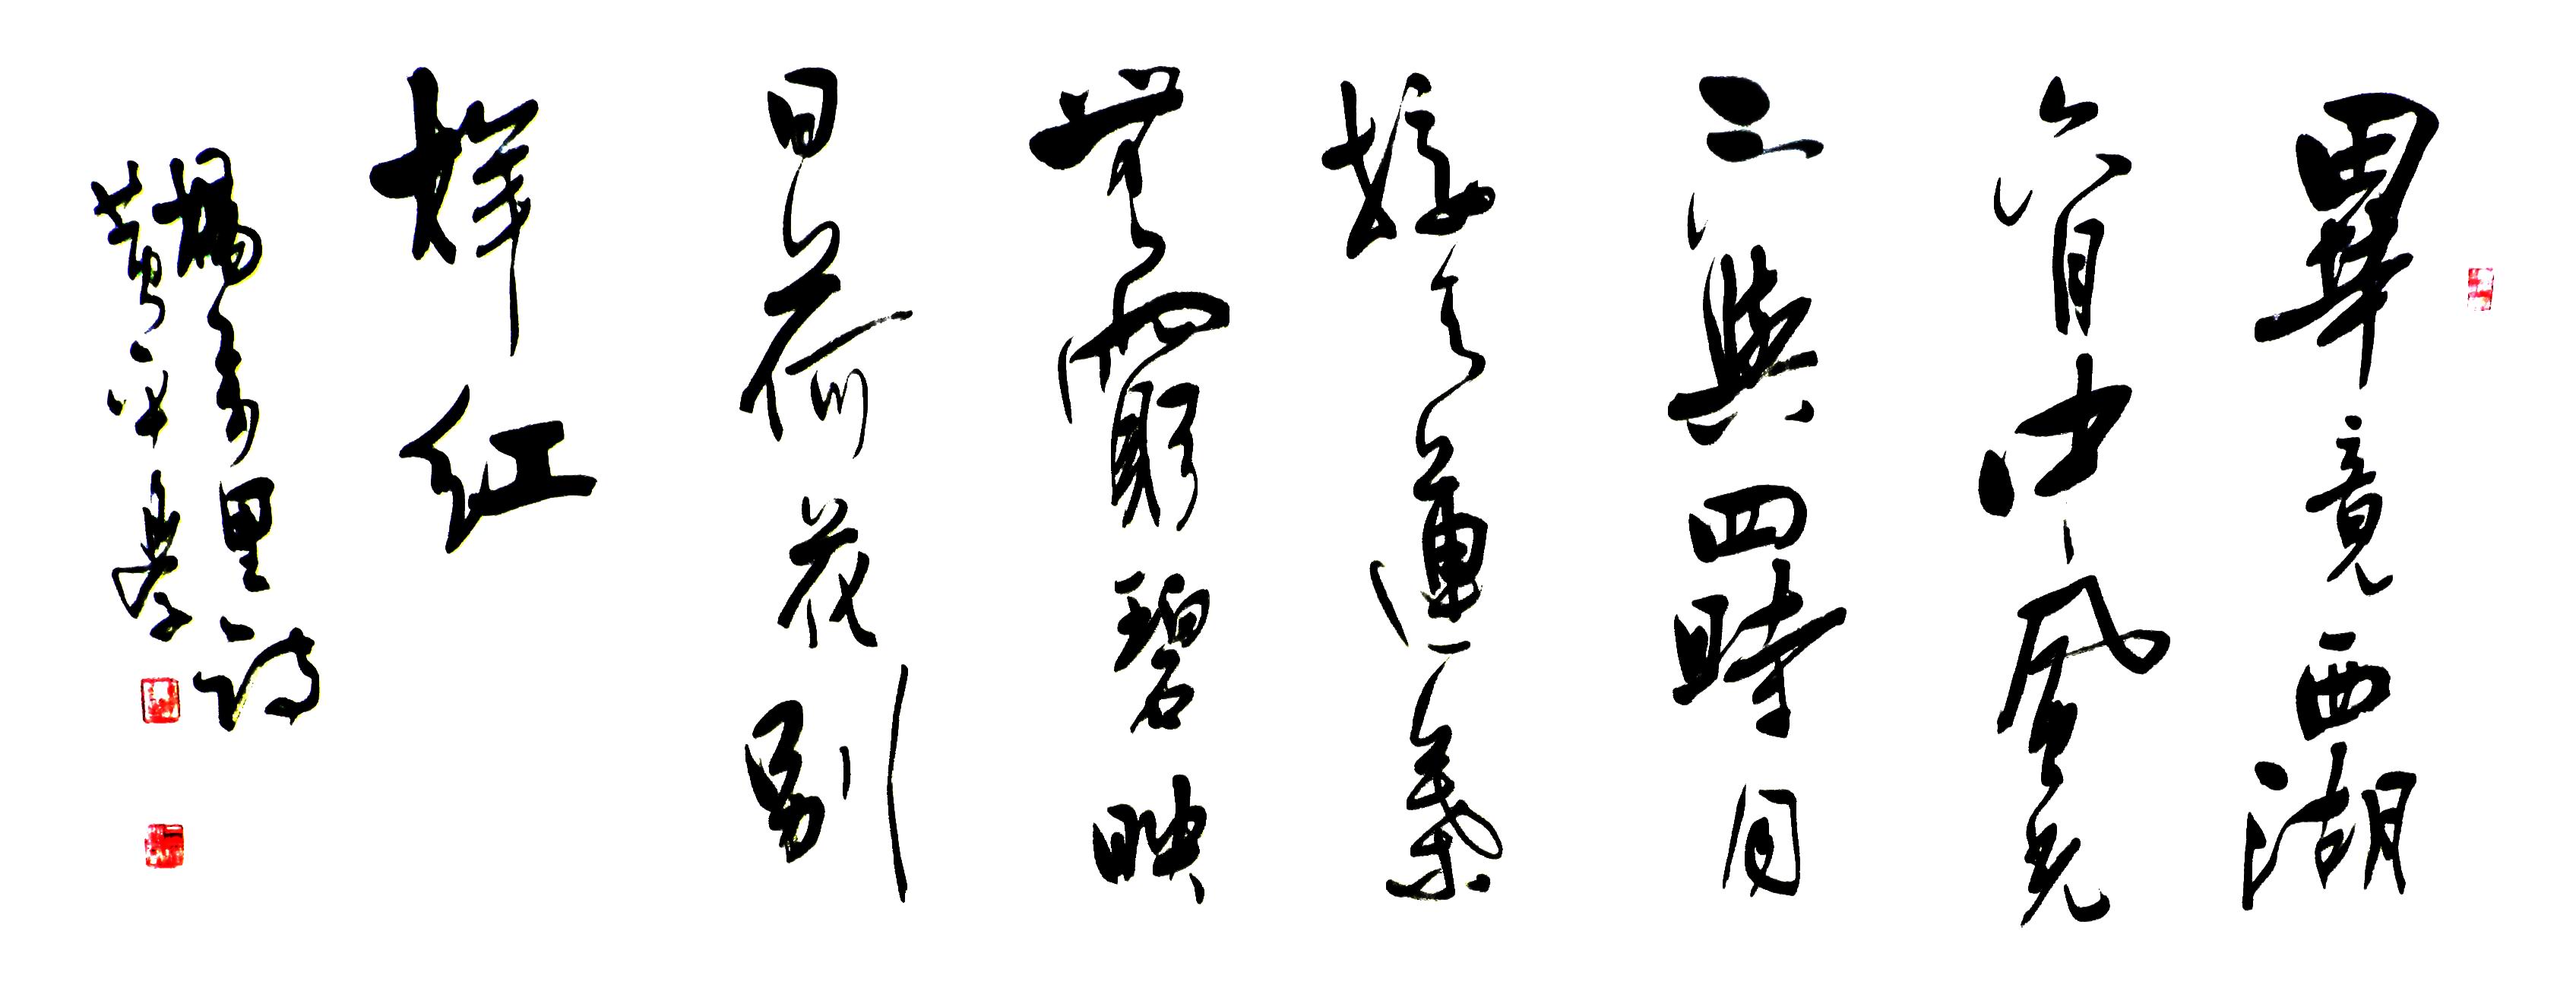 畢竟西湖
六月中風光
不與四時同
接天蓮葉
無窮碧映
日荷花別
样紅
楊萬里詩
黄平